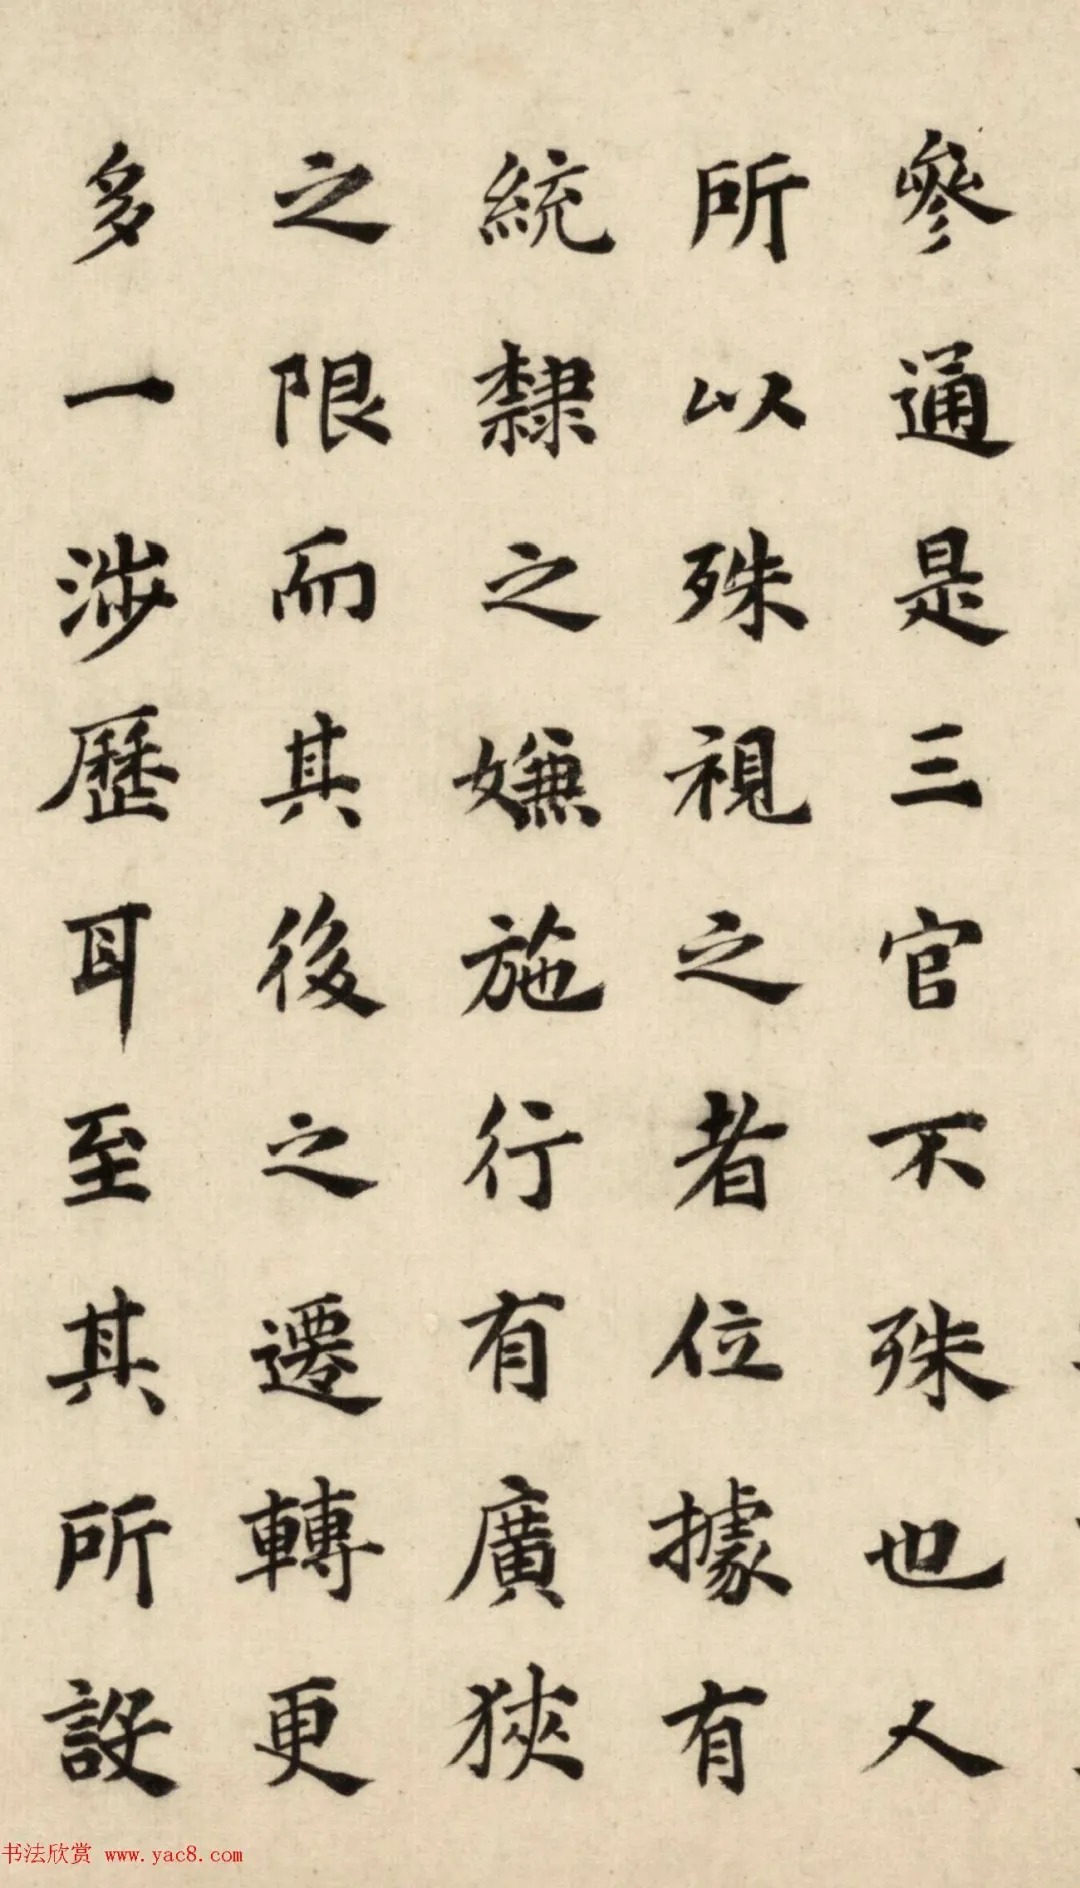 參通是三官不殊也人
所以殊視之者位據有
統隸之嫌施行有廣狹
之限而其後之遷轉更
多一涉歷耳至其所設
书法欣赏 www.yac8.com